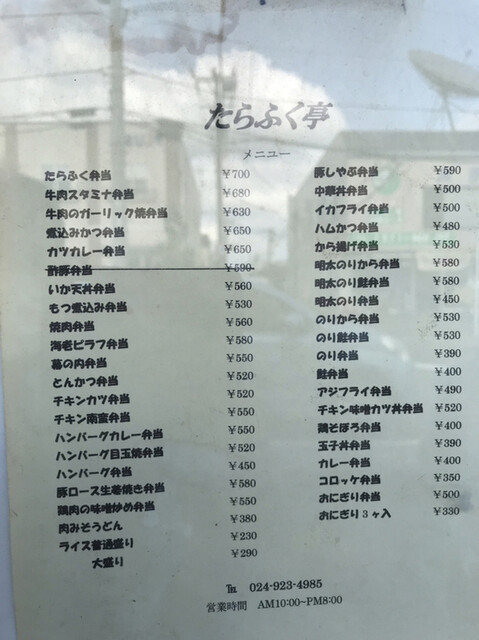 たらふく亭
メニュー
たらふく弁当 ¥700
牛肉スタミナ弁当 ¥680
牛肉のガーリック焼弁当 ¥630
煮込みかつ弁当 ¥650
カツカレー弁当 ¥650
酢豚弁当 ¥590
いか天丼弁当 ¥560
もつ煮込み弁当 ¥530
焼肉弁当 ¥560
海老ピラフ弁当 ¥580
幕の内弁当 ¥550
とんかつ弁当 ¥520
チキンカツ弁当 ¥520
チキン南蛮弁当 ¥550
ハンバーグカレー弁当 ¥550
ハンバーグ目玉焼弁当 ¥520
ハンバーグ弁当 ¥450
豚ロース生姜焼き弁当 ¥580
鶏肉の味噌炒め弁当 ¥550
肉みそうどん ¥380
ライス普通盛り ¥230
大盛り ¥290
豚しゃぶ弁当 ¥590
中華丼弁当 ¥500
イカフライ弁当 ¥500
ハムかつ弁当 ¥480
から揚げ弁当 ¥530
明太のりから弁当 ¥580
明太のり鮭弁当 ¥580
明太のり弁当 ¥450
のりから弁当 ¥530
のり鮭弁当 ¥530
のり弁当 ¥390
鮭弁当 ¥400
アジフライ弁当 ¥490
チキン味噌カツ丼弁当 ¥520
鶏そぼろ弁当 ¥400
玉子丼弁当 ¥390
カレー弁当 ¥400
コロッケ弁当 ¥350
おにぎり弁当 ¥500
おにぎり3ヶ入 ¥330
℡ 024-923-4985
営業時間 AM10:00~PM8:00